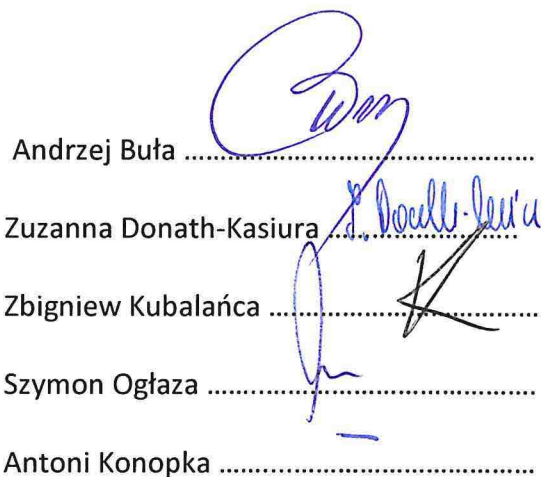 Andrzej Buła ..............................................
Zuzanna Donath-Kasiura .........................
Zbigniew Kubalańca ...................................
Szymon Ogłaza ...........................................
Antoni Konopka .........................................